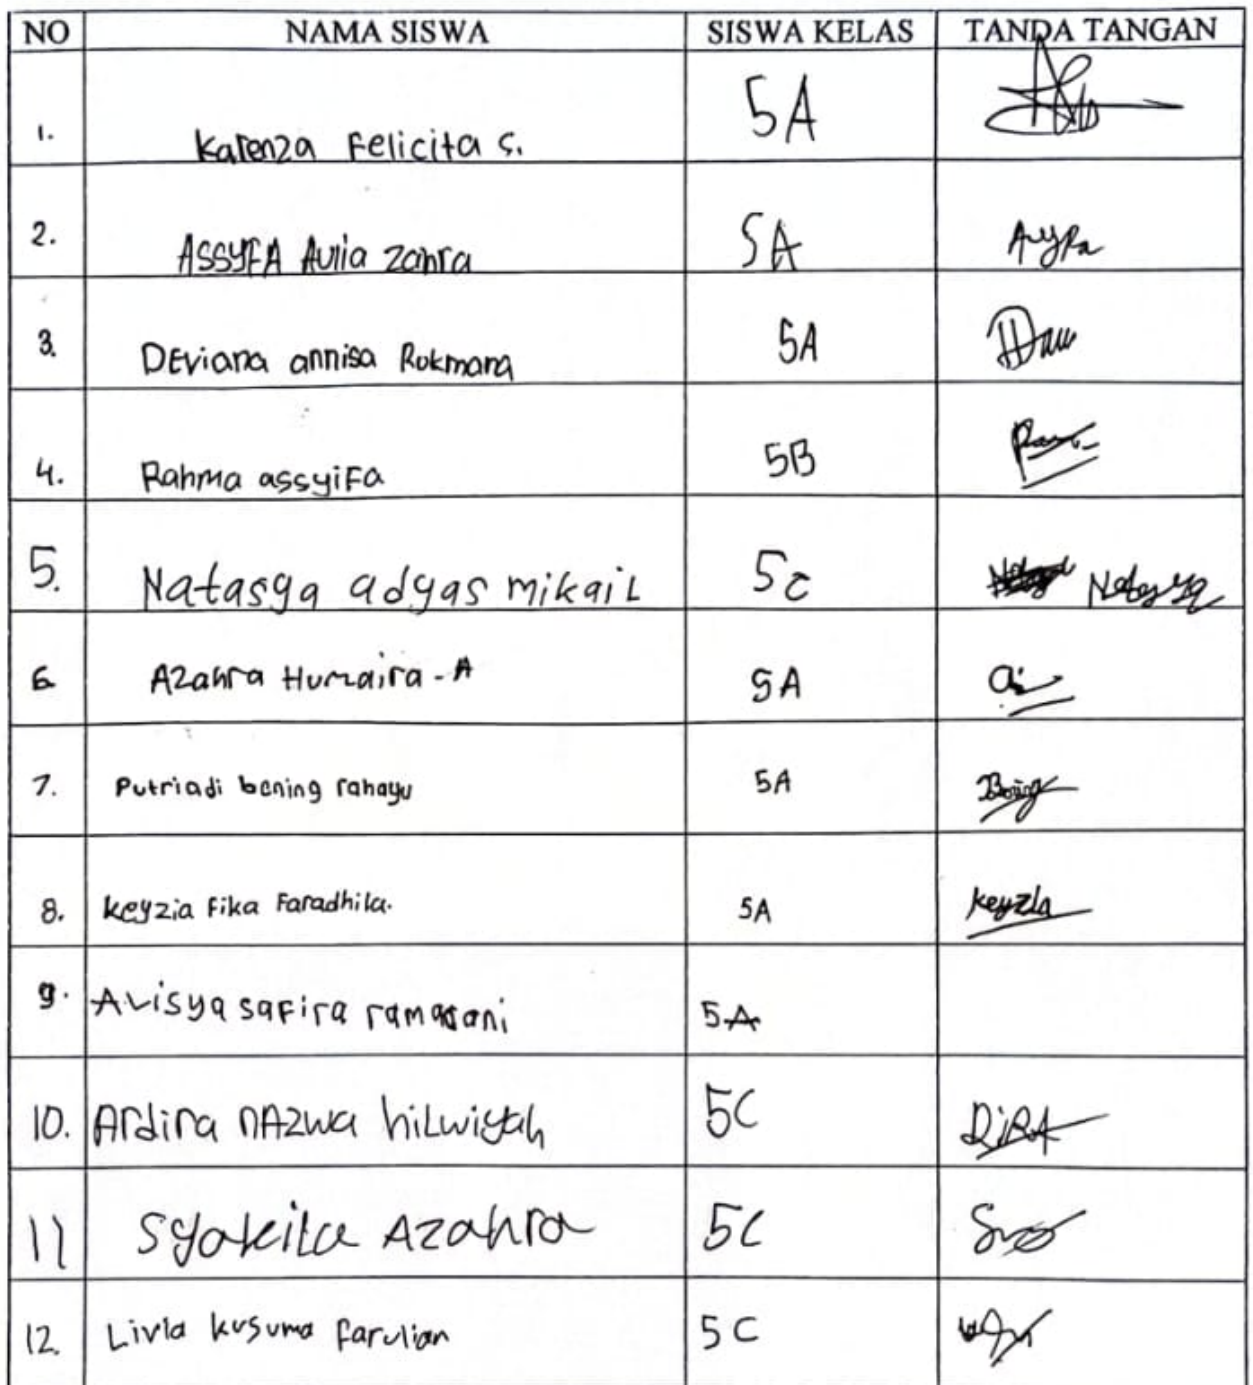 NO NAMA SISWA SISWA KELAS TANDA TANGAN
1. Karenza Felicita S. 5A
2. ASSYFA Aulia Zahra 5A
3. DEviana annisa Rukmana 5A
4. Rahma assyiFa 5B
5. Natasya adyas mikaiL 5c Natasya
6 Azahra Humaira - A 5A
7. Putriadi bening rahayu 5A Bening
8. keyzia Fika Faradhila. 5A keyzia
9. Avisya saFira ramadani 5A
10. Ardira nAzwa hiLwiyah 5C DiRA
11 Syakila Azahra 5C
12. Livia kusuma farulian 5C